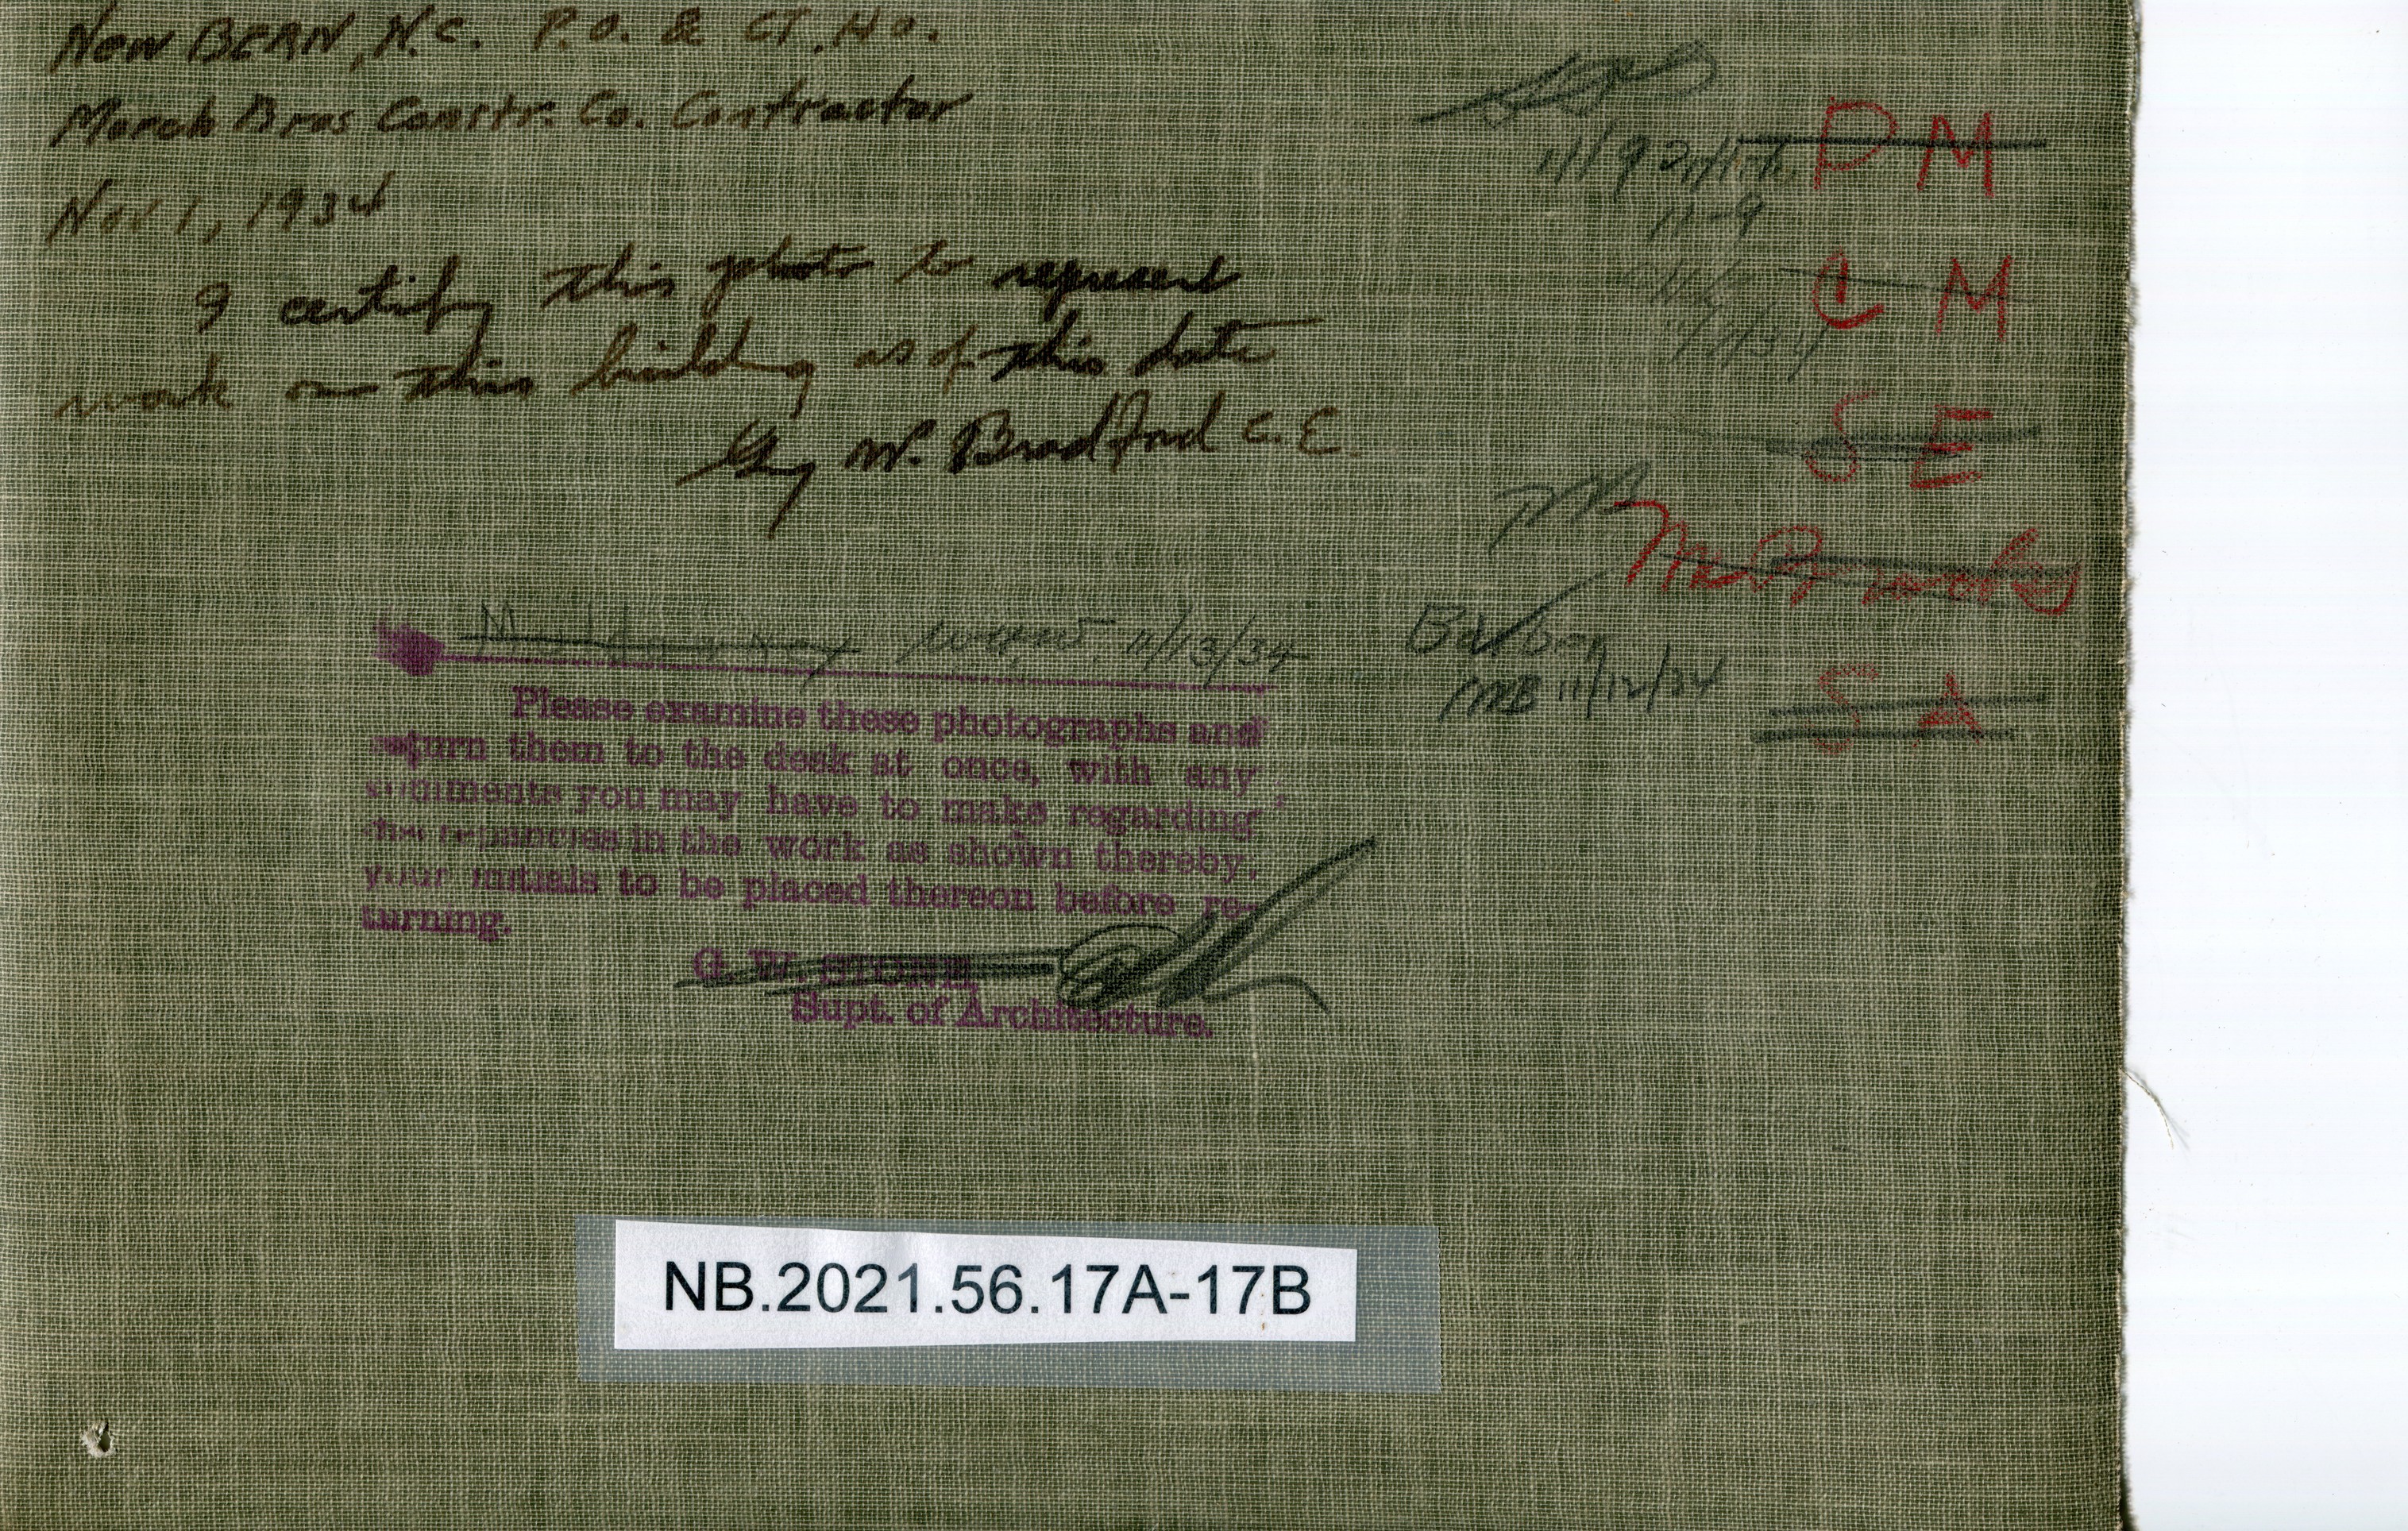 New BERN, N.C. P.O. & CT. HO.
Murch Bros Constr. Co. Contractor
Nov 1, 1934
I certify this photo to represent
work on this building as of this date
Guy W. Bradford C.E.
P M
11-9
C M
S E
Barber
MB 11/12/34
S A
11/13/34
Please examine these photographs and
return them to the desk at once, with any
comments you may have to make regarding
discrepancies in the work as shown thereby,
your initials to be placed thereon before re-
turning.
G. W. STONE,
Supt. of Architecture.
NB.2021.56.17A-17B